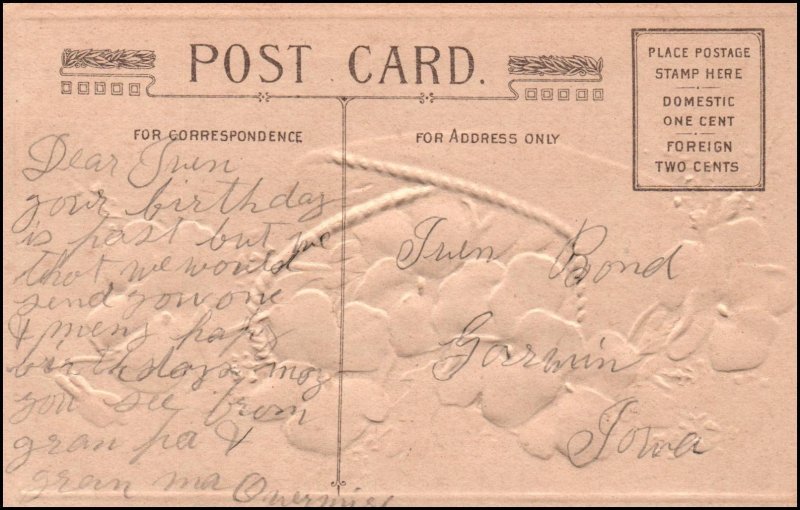 POST CARD.
PLACE POSTAGE
STAMP HERE
DOMESTIC
ONE CENT
FOREIGN
TWO CENTS
FOR CORRESPONDENCE
FOR ADDRESS ONLY
Dear Iven
your birthday
is past but we
that we would
send you one
& meny hapy
birthdays may
you see from
gran pa &
gran ma
Iven Bond
Garwin
Iowa